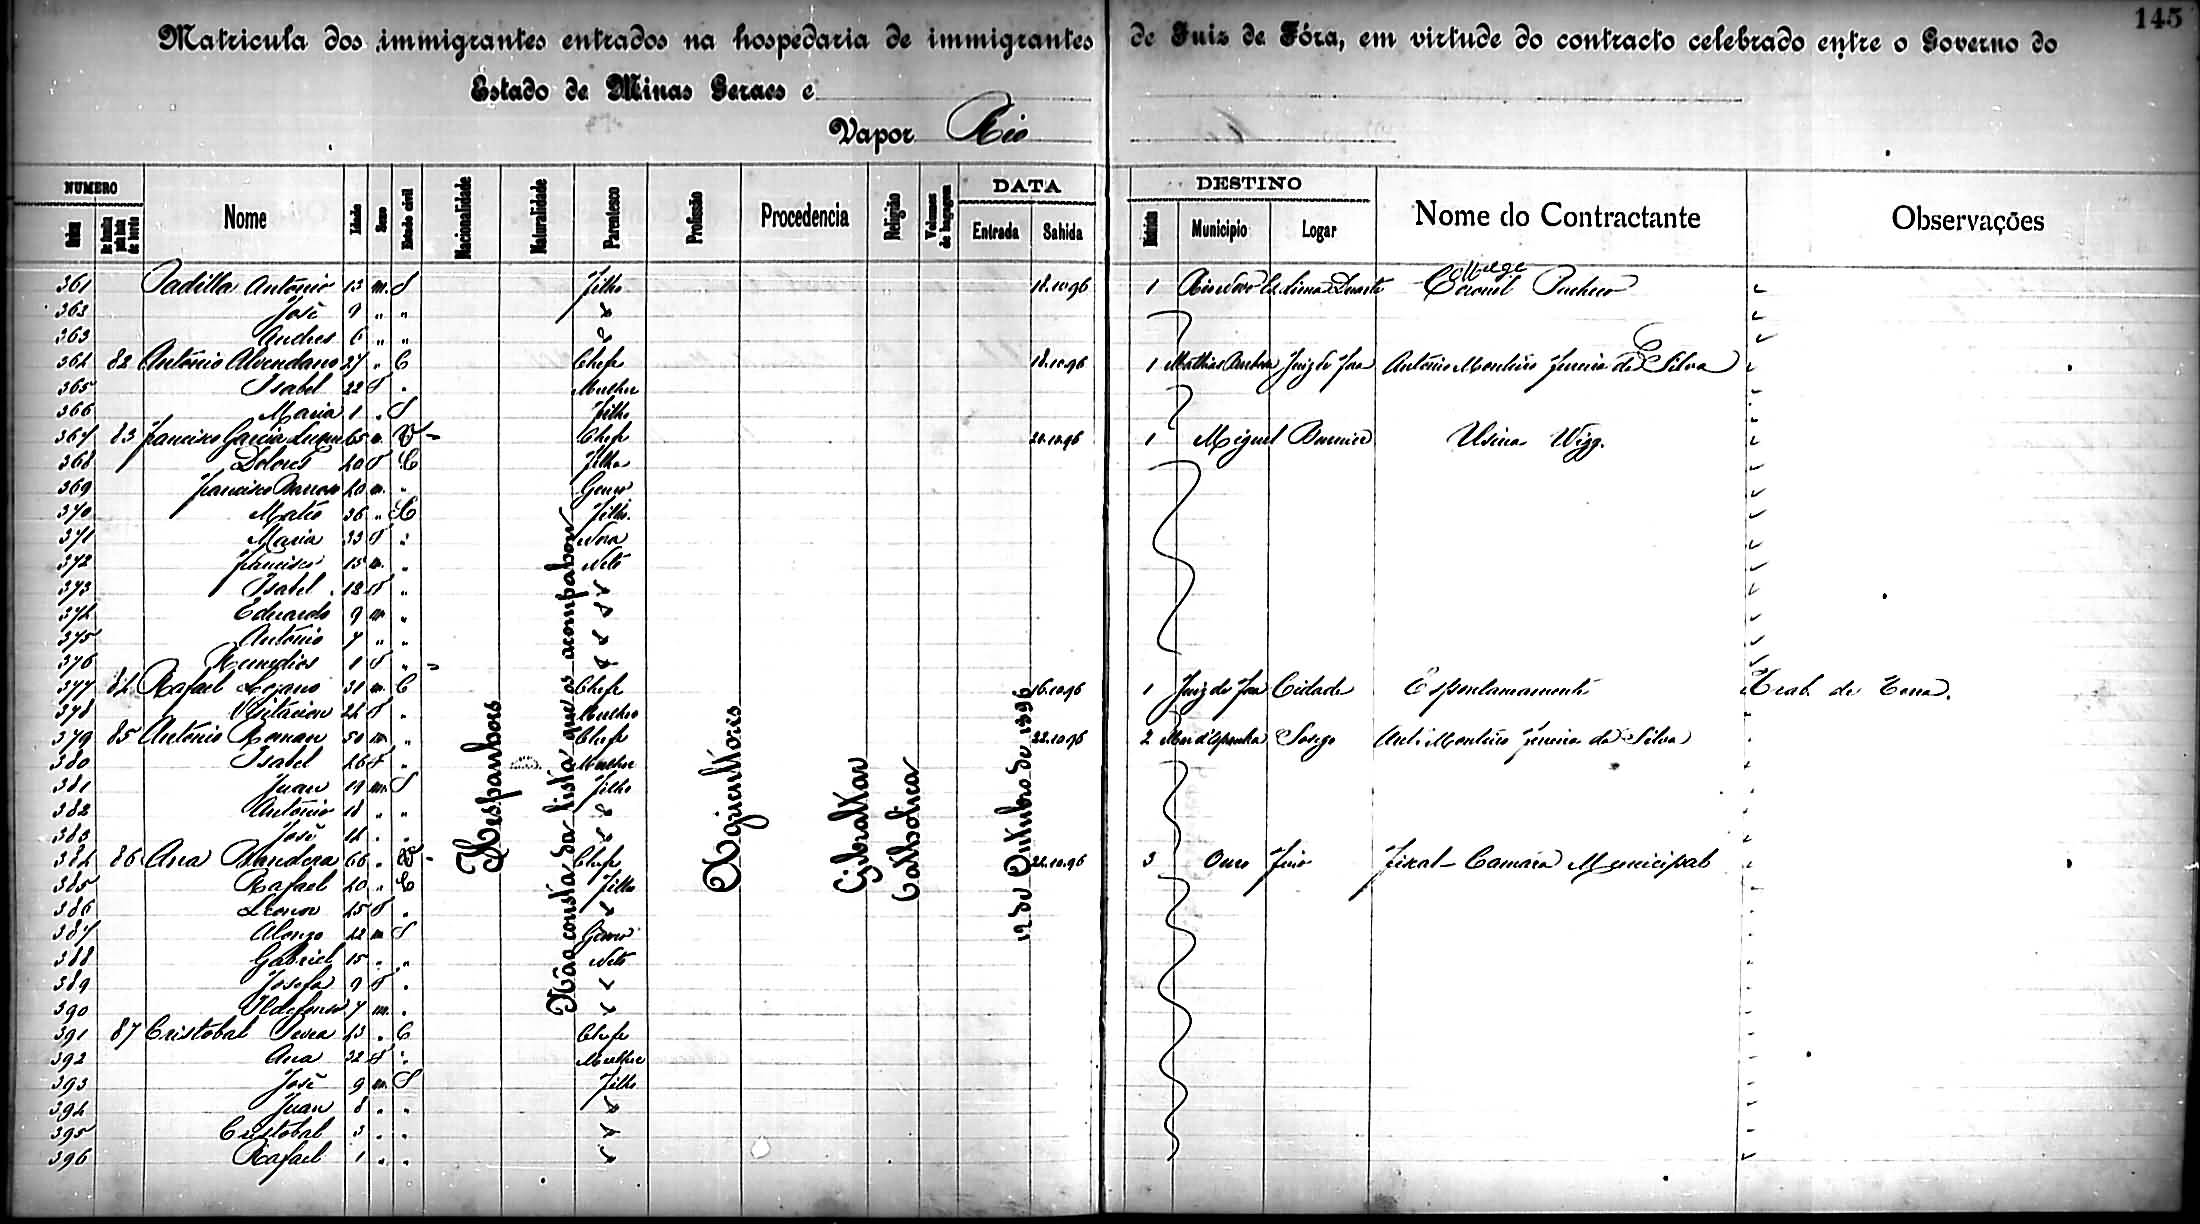 145
Matricula dos immigrantes entrados na hospedaria de immigrantes de Juiz de Fóra, em virtude do contracto celebrado entre o Governo do
Estado de Minas Geraes e
Vapor Rio
NUMERO DATA DESTINO
Ordem da familia pela lista de bordo Nome Idade Sexo Estado civil Nacionalidade Naturalidade Parentesco Profissão Procedencia Religião Volumes de bagagem Entrada Sahida Districto Municipio Logar Nome do Contractante Observações
361 Padilla Antonio 13 m. S Filho 18.10.96 1 Lima Duarte Coronel Pacheco
363 José 9 " "
363 Andres 6 " "
364 82 Antonio Avendano 27 " C Chefe 18.10.96 1 Mathias Barbosa Juiz de Fora Antonio Monteiro Ferreira da Silva
365 Isabel 22 f "
Mulher
366 Maria 1 " S Filho
367 83 Francisco Garcia 65 m. V Chefe 20.10.96 1 Miguel Burnier Usina Wigg.
368 Dolores 40 f C Filha
369 Francisco 40 m. " Genro
370 Mateo 36 " C Filho
371 Maria 33 f " Nora
372 Francisco 15 m. " Neto
373 Isabel 12 f "
374 Eduardo 9 m "
375 Antonio 7 " "
376 Remedios 1 f "
377 84 Rafael Lozano 31 m. C Chefe 16.10.96 1 Juiz de Fora Cidade Espontamamente Trab. de Terra.
378 Visitacion 24 f " Mulher
379 85 Antonio Roman 50 m. " Chefe 22.10.96 2 Mar d'Espanha Socego Ant. Monteiro Ferreira da Silva
380 Isabel 46 f " Mulher
381 Juan 19 m. S Filho
382 Antonio 18 " "
383 José 14 " "
384 86 Ana Bandera 66 " V Chefe 22.10.96 3 Ouro Fino Fiscal Camara Municipal
385 Rafael 40 " C Filho
386 Leonor 45 f "
387 Alonzo 42 m S Genro
388 Gabriel 15 " " Neto
389 Josefa 9 f "
390 Ildefonso 7 m. "
391 87 Cristobal 43 " C Chefe
392 Ana 32 f " Mulher
393 José 9 m. S Filho
394 Juan 8 " "
395 Cristobal 3 " "
396 Rafael 1 " "
Hespanhoes
Não consta da lista que os acompanhou
Agricultores
Gibraltar
Catholica
12 de Outubro de 1896